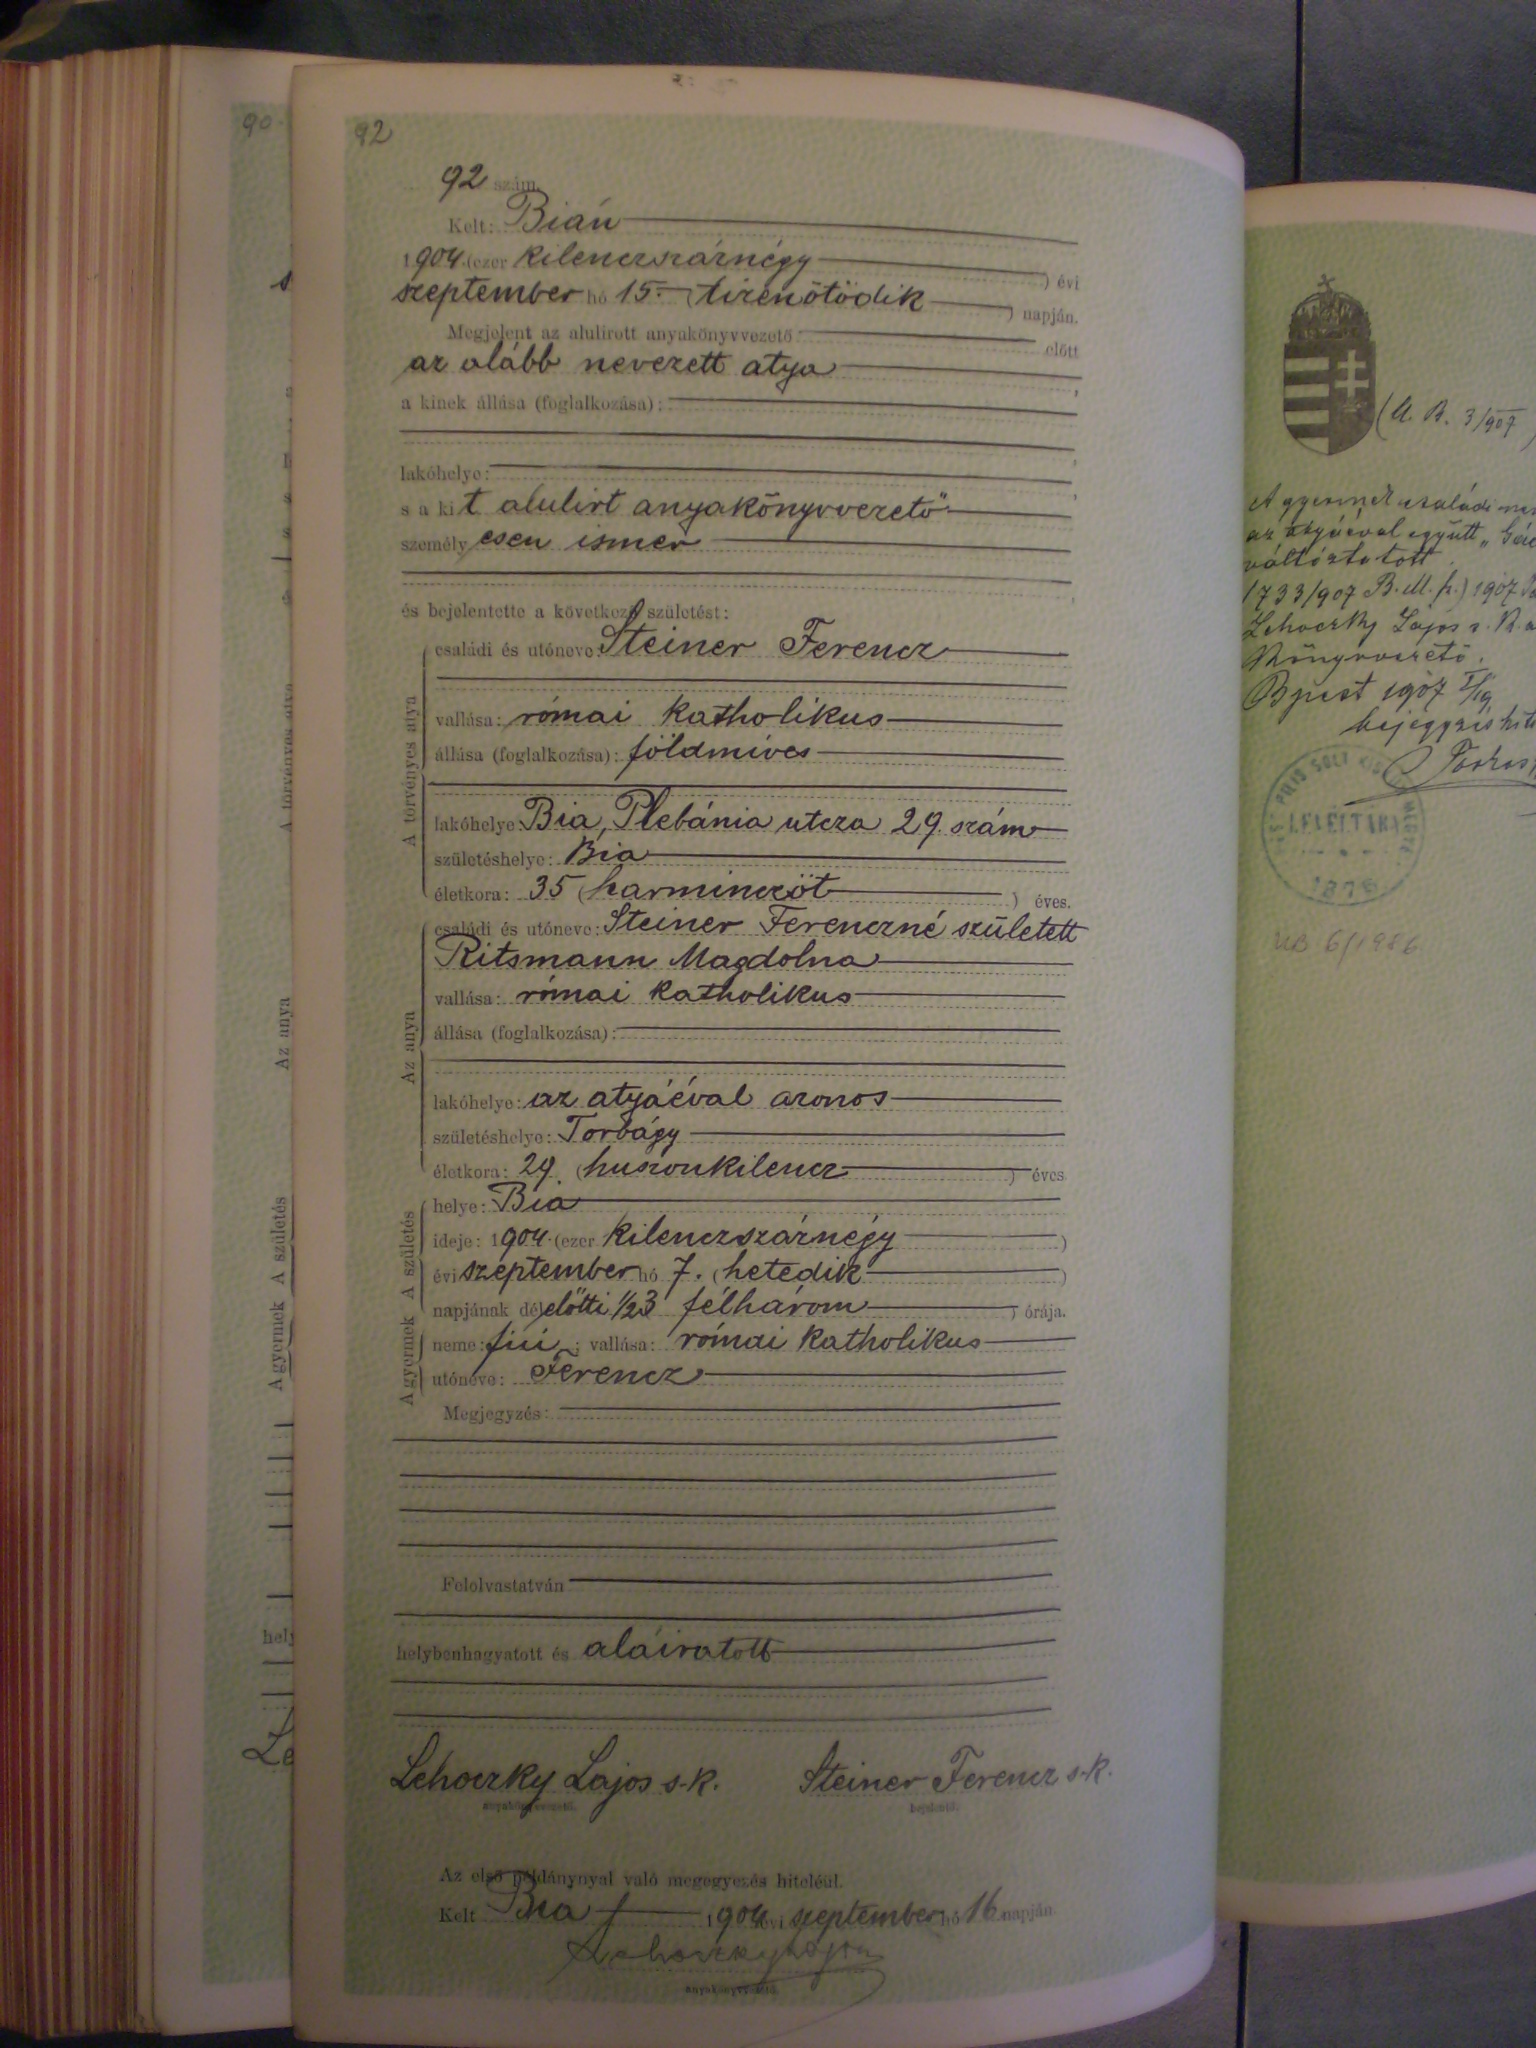 90.
92
92 szám.
Kelt: Bián
1904. (ezer kilenczszáznégy ) évi
szeptember hó 15. (tizenötödik ) napján.
Megjelent az alulirott anyakönyvvezető előtt
az alább nevezett atya ,
a kinek állása (foglalkozása):
lakóhelye:
s a kit alulirt anyakönyvvezető
személyesen ismer
és bejelentette a következő születést:
A törvényes atya
családi és utóneve: Steiner Ferencz
vallása: római katholikus
állása (foglalkozása): földmíves
lakóhelye: Bia, Plebánia utcza 29. szám
születéshelye: Bia
életkora: 35 (harminczöt ) éves.
Az anya
családi és utóneve: Steiner Ferenczné született
Ritsmann Magdolna
vallása: római katholikus
állása (foglalkozása):
lakóhelye: az atyáéval azonos
születéshelye: Torbágy
életkora: 29. (huszonkilencz ) éves
A gyermek A születés
helye: Bia
ideje: 1904. (ezer kilenczszáznégy )
évi szeptember hó 7. (hetedik )
napjának délelőtti ½3 félhárom ) órája.
neme: fiú ; vallása: római katholikus
utóneve: Ferencz
Megjegyzés:
Felolvastatván
helybenhagyatott és aláiratott
Lehoczky Lajos s.k. Steiner Ferencz s.k.
anyakönyvvezető. bejelentő.
Az első példánynyal való megegyezés hiteléül.
Kelt Bia 1904 évi szeptember hó 16 napján
Lehoczky Lajos
anyakönyvvezető.
A törvényes atya
Az anya
A gyermek A születés
(A. B. 3/907
A gyermek családi
az atyáéval együtt
változtatott.
(733/907 B. M. sz.) 1907
Lehoczky Lajos s. k.
könyvvezető.
Bpest 1907 I/19
bejegyzés
LEVÉLTÁRA
1876
UB 6/1986.